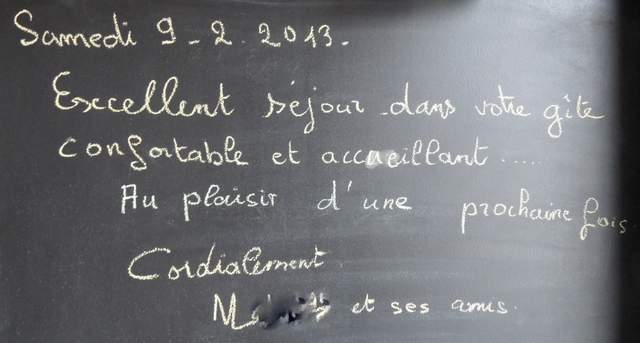 Samedi 9-2.2013.
Excellent séjour dans votre gîte
confortable et accueillant.....
Au plaisir d'une prochaine fois
Cordialement.
et ses amis.